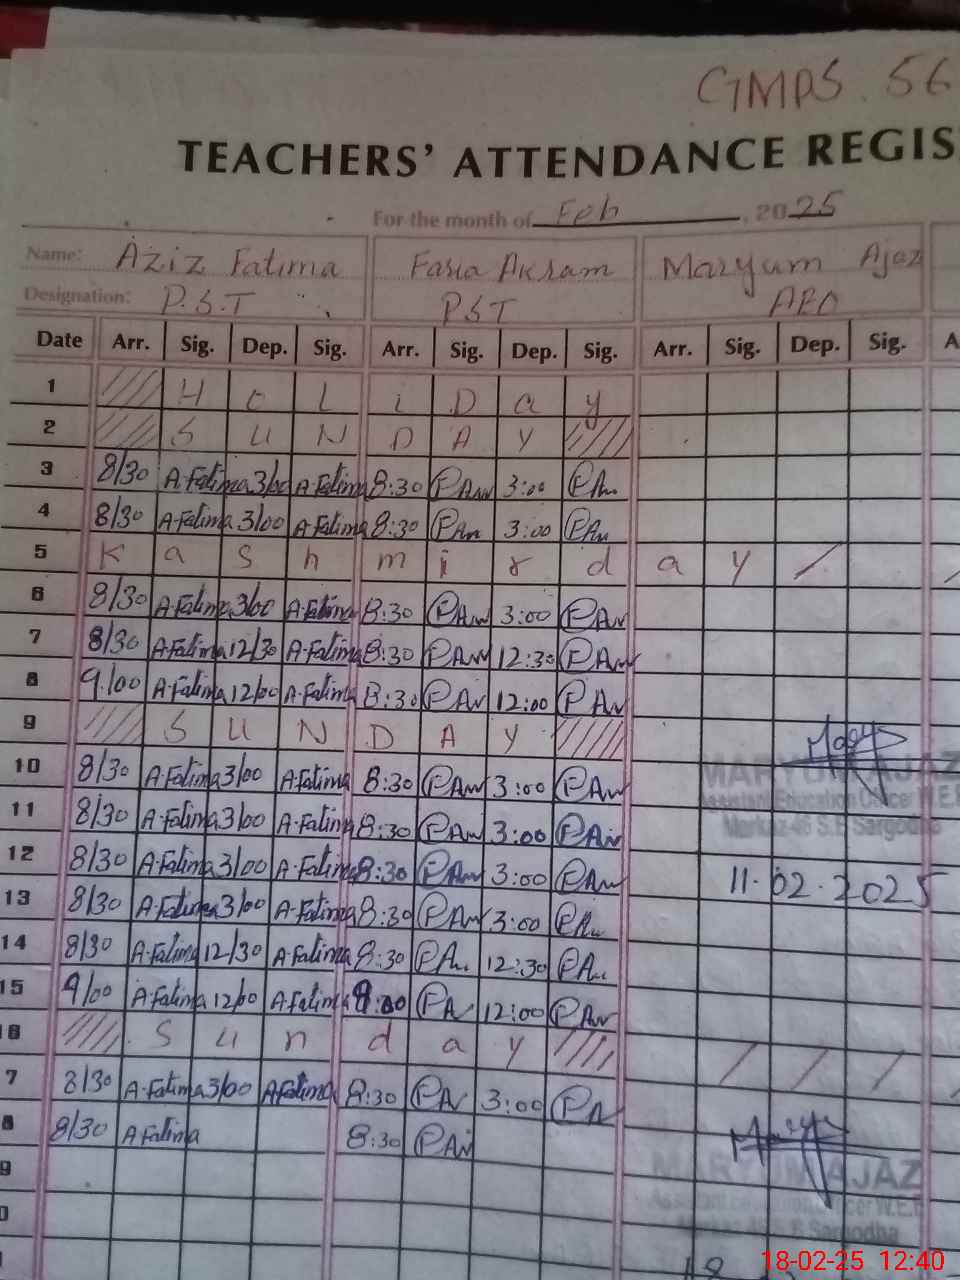 GMPS 56
TEACHERS' ATTENDANCE REGIS
For the month of Feb, 2025
Name: Aziz Fatima Faria Akram Maryum Ajaz
Designation: P.S.T PST AEO
Date Arr. Sig. Dep. Sig. Arr. Sig. Dep. Sig. Arr. Sig. Dep. Sig. A
1 H o L i D a y
2 S U N D A Y
3 8/30 A.Fatima 3/00 A.Fatima 8:30 3:00
4 8/30 A.Fatima 3/00 A.Fatima 8:30 3:00
5 K a s h m i r d a y
6 8/30 A.Fatima 3/00 A.Fatima 8:30 3:00
7 8/30 A.Fatima 12/30 A.Fatima 8:30 12:30
8 9/00 A.Fatima 12/00 A.Fatima 8:30 12:00
9 S U N D A Y
10 8/30 A.Fatima 3/00 A.Fatima 8:30 3:00
MARYUM AJAZ
11 8/30 A.Fatima 3/00 A.Fatima 8:30 3:00
Assistant Education Officer W.E.E
Markaz-46 S.E Sargodha
12 8/30 A.Fatima 3/00 A.Fatima 8:30 3:00
11.02.2025
13 8/30 A.Fatima 3/00 A.Fatima 8:30 3:00
14 8/30 A.Fatima 12/30 A.Fatima 8:30 12:30
15 9/00 A.Fatima 12/00 A.Fatima 12:00
16 S u n d a y
7 8/30 A.Fatima 3/00 A.Fatima 8:30 3:00
8 8/30 A Fatima 8:30
9
MARYUM AJAZ
0
Sargodha
18-02-25 12:40